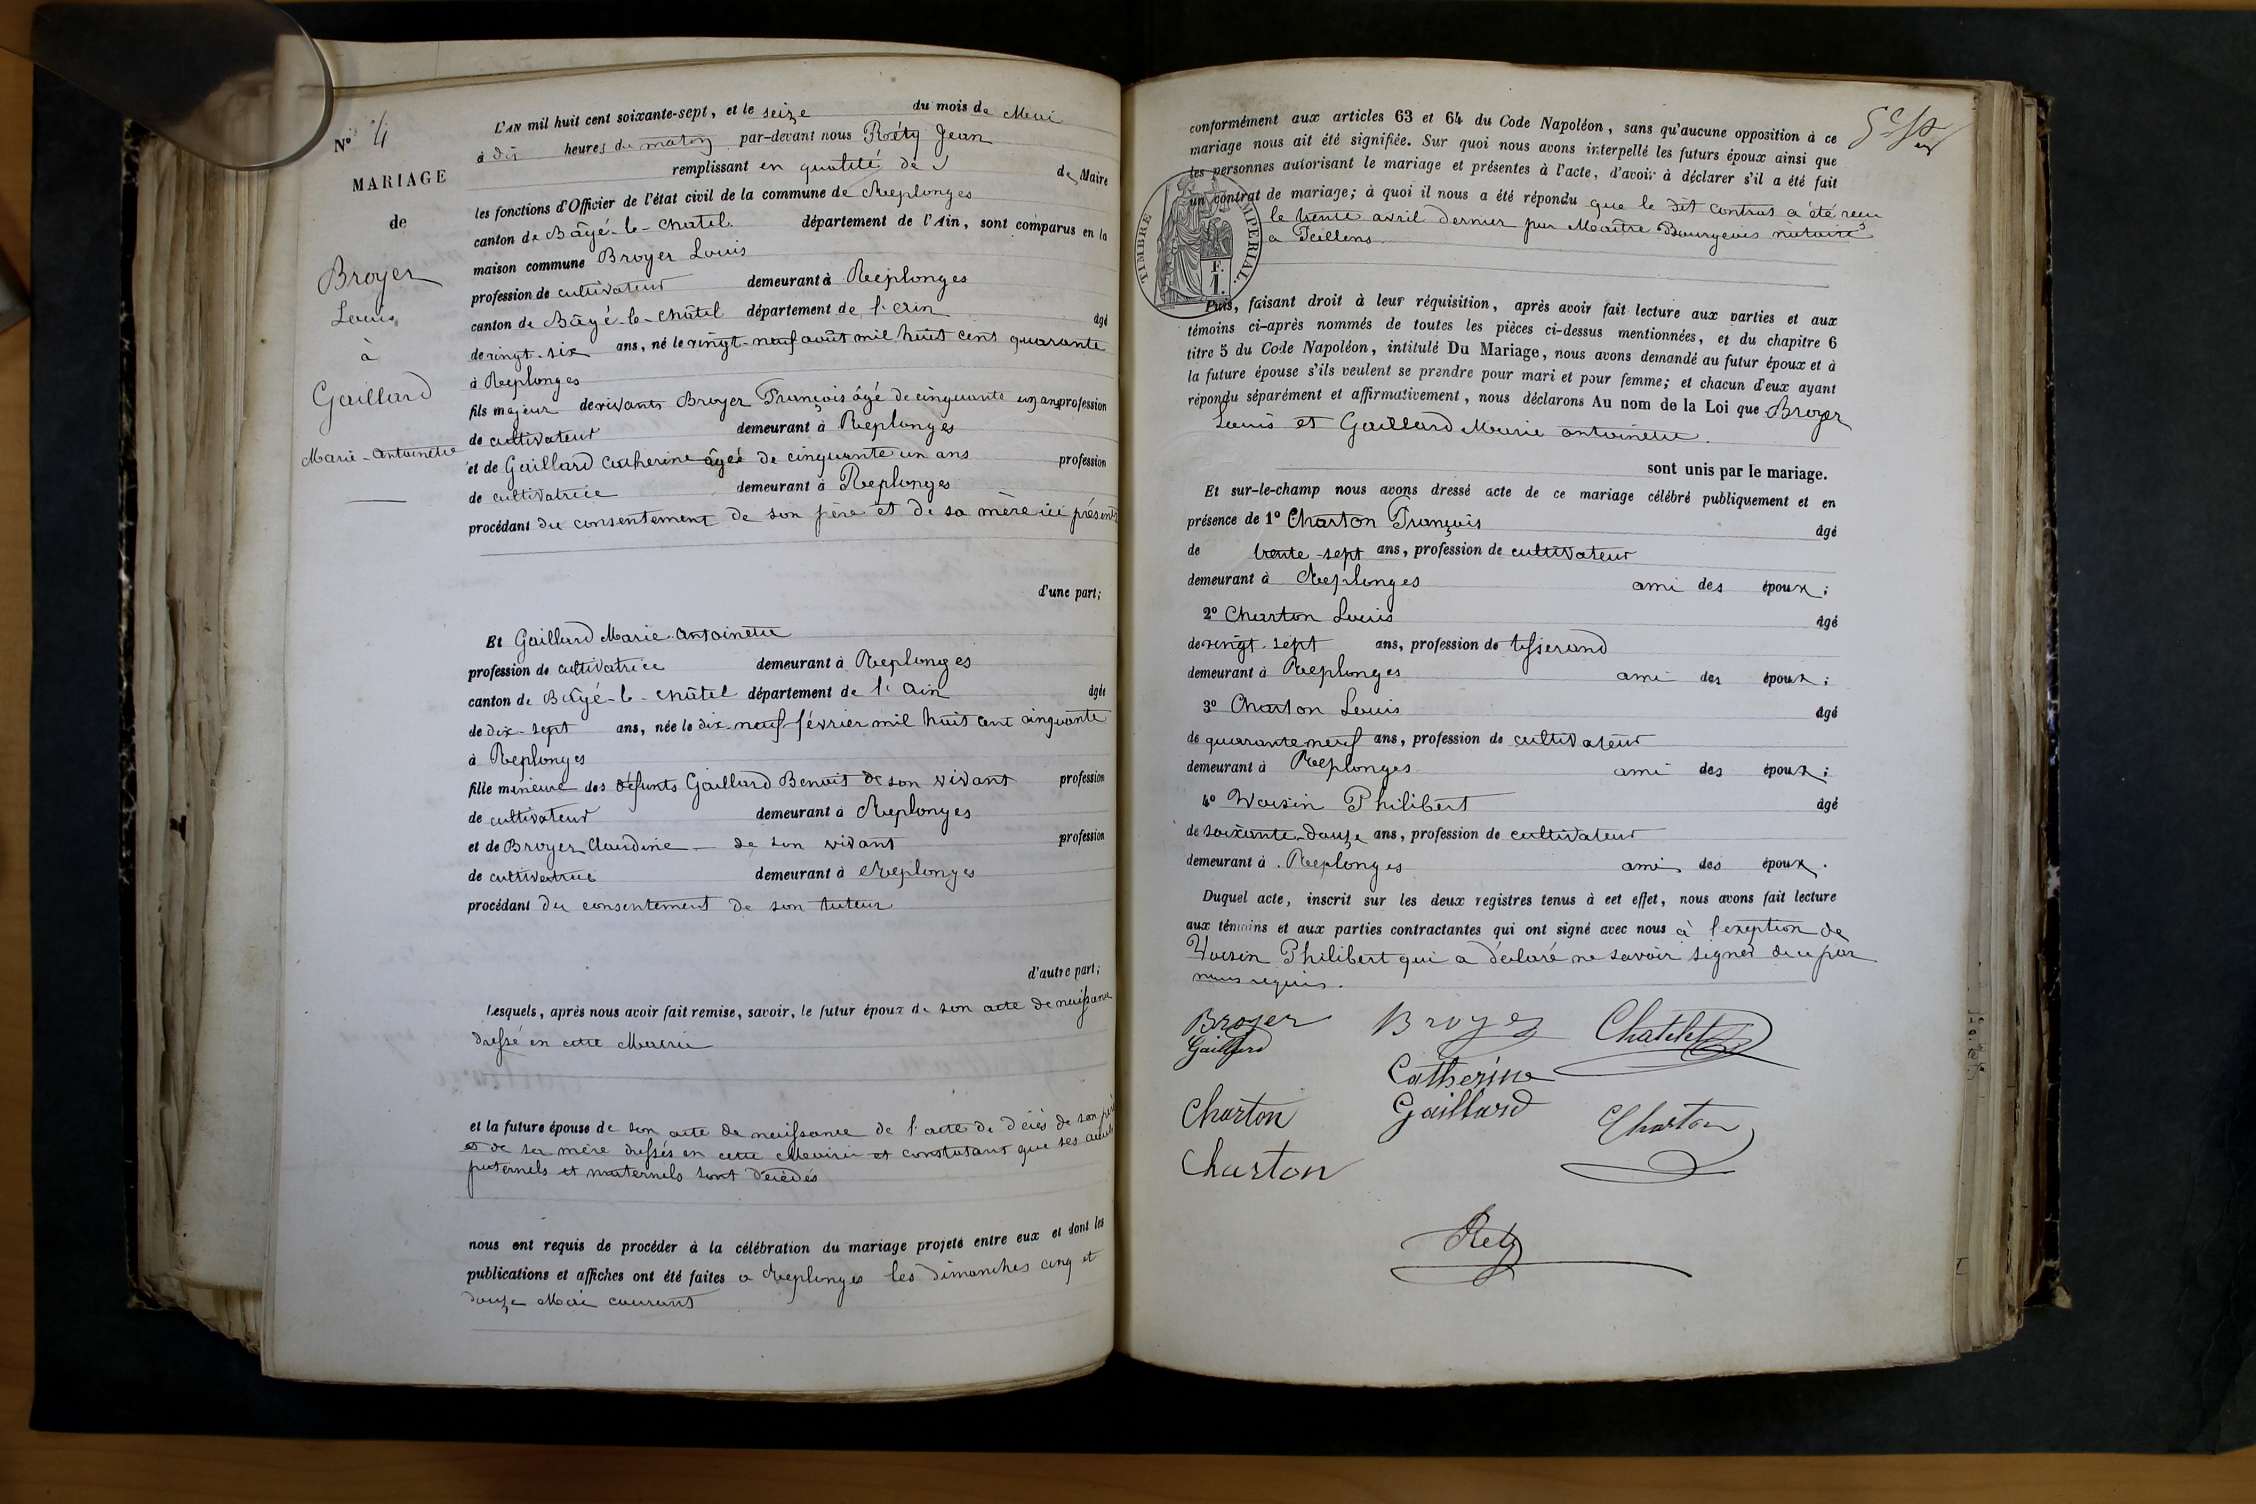 N° 4
MARIAGE
de
Broyer
Louis
à
Gaillard
Marie-Antoinette
L'AN mil huit cent soixante-sept, et le seize du mois de Mai
à dix heures du matin par-devant nous Réty Jean
remplissant en qualité de de Maire
les fonctions d'Officier de l'état civil de la commune de Replonges
canton de Bâgé-le-Châtel département de l'Ain, sont comparus en la
maison commune Broyer Louis
profession de cultivateur demeurant à Replonges
canton de Bâgé-le-Châtel département de l'Ain âgé
de vingt-six ans, né le vingt-neuf août mil huit cent quarante
à Replonges
fils majeur de vivants Broyer François âgé de cinquante un ans profession
de cultivateur demeurant à Replonges
et de Gaillard Catherine âgée de cinquante un ans profession
de cultivatrice demeurant à Replonges
procédant du consentement de son père et de sa mère ici présents
d'une part;
Et Gaillard Marie-Antoinette
profession de cultivatrice demeurant à Replonges
canton de Bâgé-le-Châtel département de l'Ain âgée
de dix-sept ans, née le dix-neuf février mil huit cent cinquante
à Replonges
fille mineure des défunts Gaillard Benoit de son vivant profession
de cultivateur demeurant à Replonges
et de Broyer Claudine - de son vivant profession
de cultivatrice demeurant à Replonges
procédant du consentement de son tuteur
d'autre part;
Lesquels, après nous avoir fait remise, savoir, le futur époux de son acte de naissance
dressé en cette Mairie
et la future épouse de son acte de naissance de l'acte de décès de son père
et de sa mère dressés en cette Mairie et constatant que ses aieuls
paternels et maternels sont décédés
nous ont requis de procéder à la célébration du mariage projeté entre eux et dont les
publications et affiches ont été faites à Replonges les dimanches cinq et
douze Mai courant
conformément aux articles 63 et 64 du Code Napoléon, sans qu'aucune opposition à ce
mariage nous ait été signifiée. Sur quoi nous avons interpellé les futurs époux ainsi que
les personnes autorisant le mariage et présentes à l'acte, d'avoir à déclarer s'il a été fait
un contrat de mariage; à quoi il nous a été répondu que le dit contrat a été reçu
le trente avril dernier par Maître Bourgeois notaire
à Feillens
TIMBRE IMPERIAL
F.
1.
Puis, faisant droit à leur réquisition, après avoir fait lecture aux parties et aux
témoins ci-après nommés de toutes les pièces ci-dessus mentionnées, et du chapitre 6
titre 5 du Code Napoléon, intitulé Du Mariage, nous avons demandé au futur époux et à
la future épouse s'ils veulent se prendre pour mari et pour femme; et chacun d'eux ayant
répondu séparément et affirmativement, nous déclarons Au nom de la Loi que Broyer
Louis et Gaillard Marie antoinette
sont unis par le mariage.
Et sur-le-champ nous avons dressé acte de ce mariage célébré publiquement et en
présence de 1° Charton François âgé
de trente-sept ans, profession de cultivateur
demeurant à Replonges ami des époux;
2° Charton Louis âgé
de vingt-sept ans, profession de tisserand
demeurant à Replonges ami des époux;
3° Charton Louis âgé
de quarante neuf ans, profession de cultivateur
demeurant à Replonges ami des époux;
4° Voisin Philibert âgé
de soixante-douze ans, profession de cultivateur
demeurant à Replonges ami des époux.
Duquel acte, inscrit sur les deux registres tenus à cet effet, nous avons fait lecture
aux témoins et aux parties contractantes qui ont signé avec nous à l'exeption de
Voisin Philibert qui a déclaré ne savoir signer de ce par
nous requis.
Broyer Broyer Chatelet
Gaillard
Catherine
Gaillard
Charton Charton
Charton
Rety